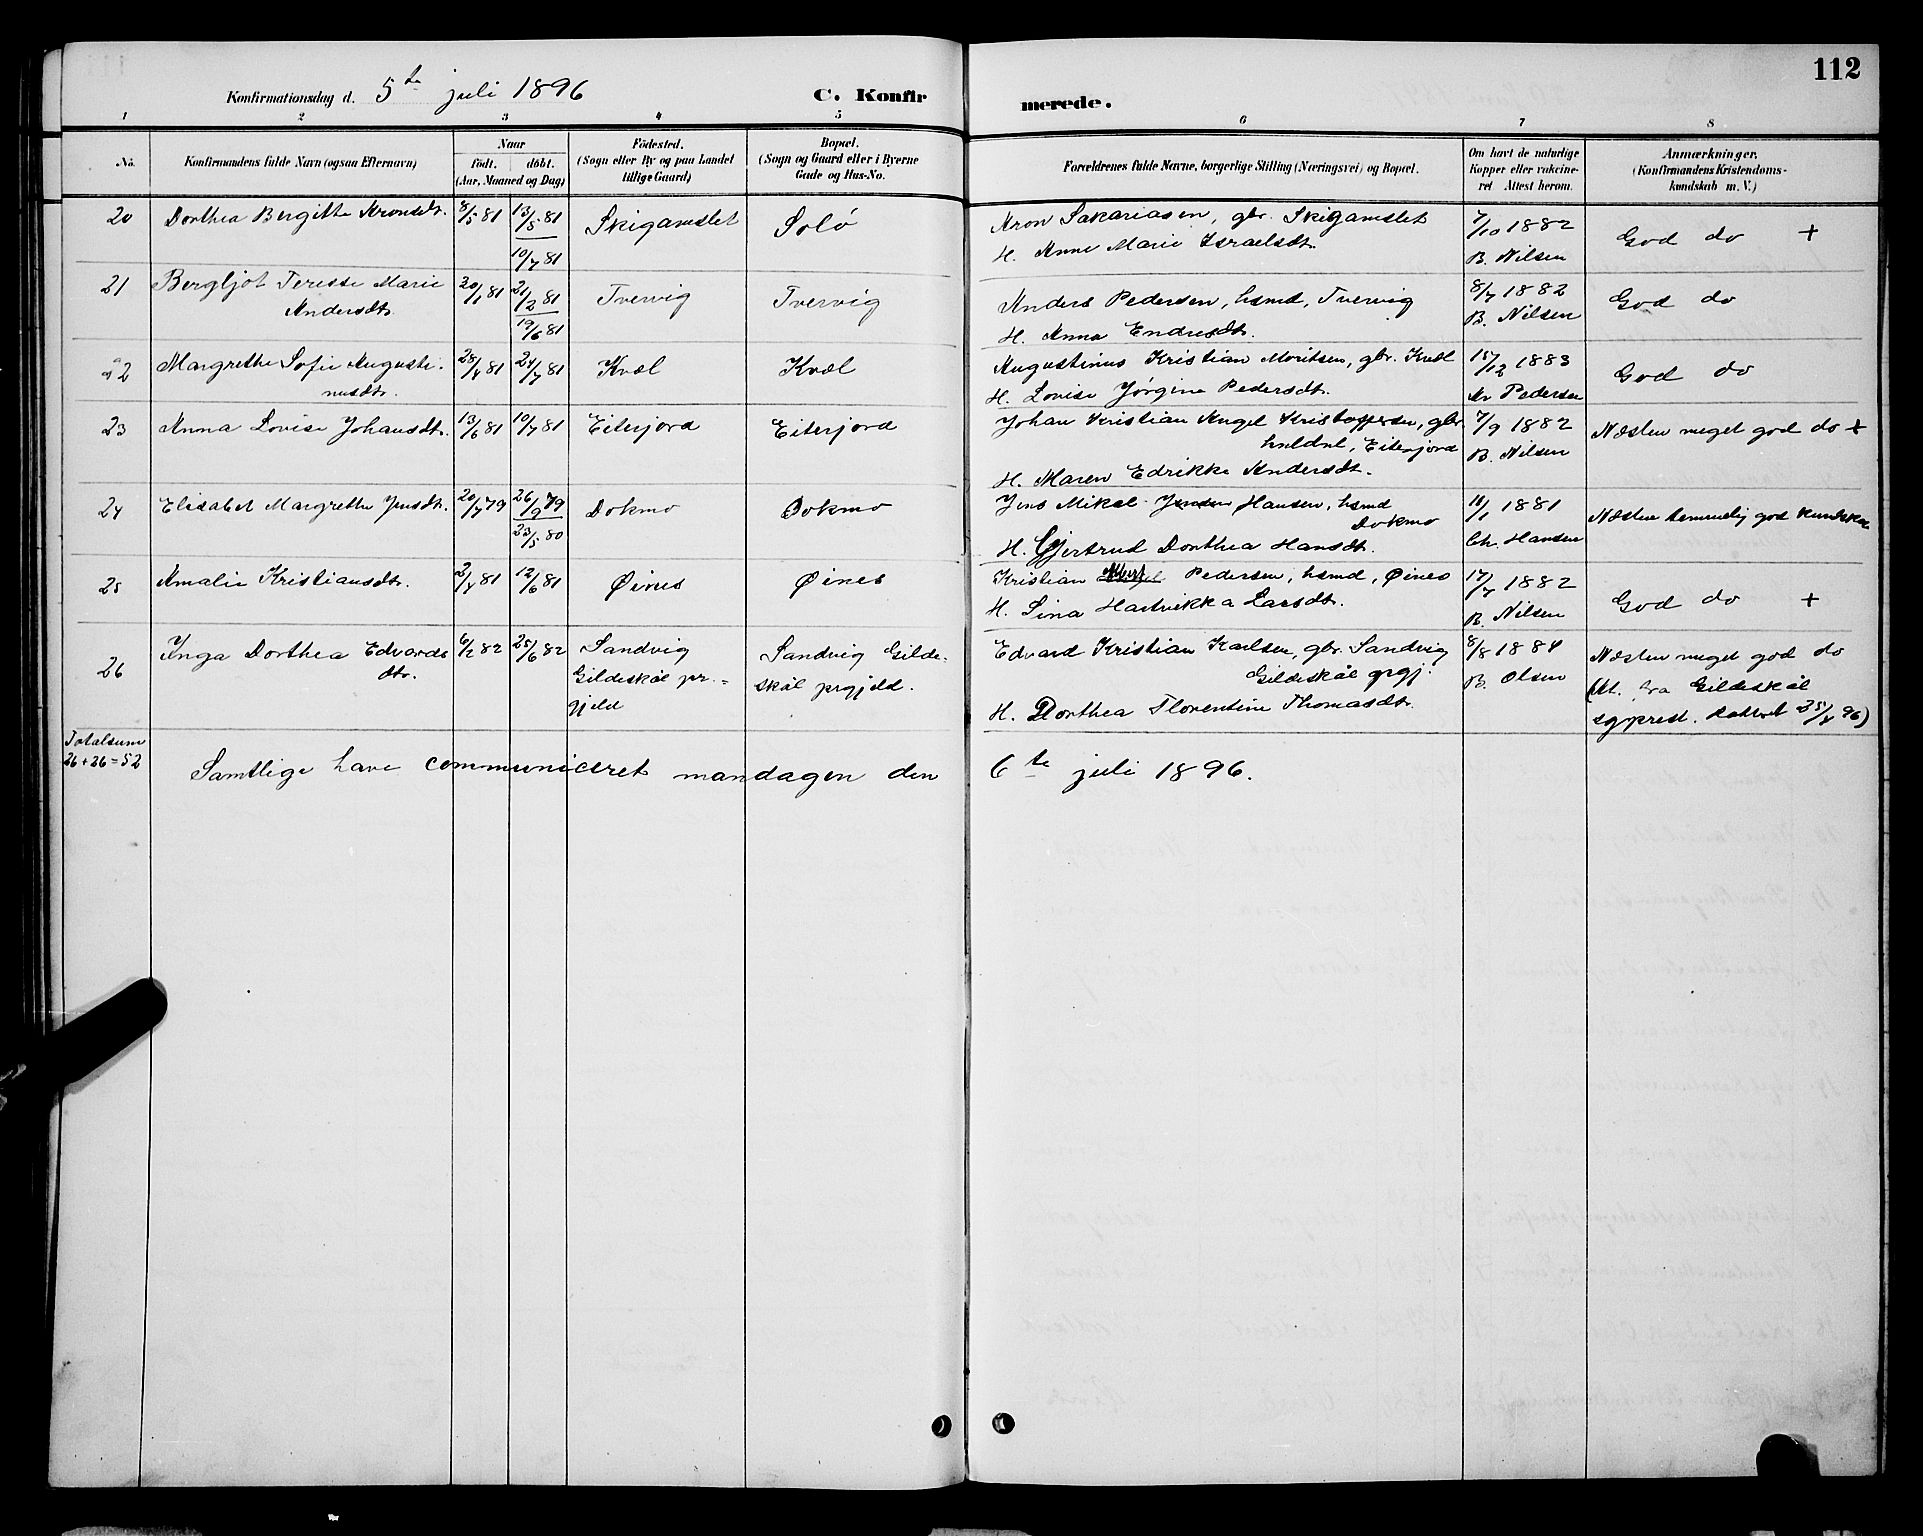 112
Konfirmationsdag d. 5te juli 1896 C. Konfir merede.
1 2 3 4 5 6 7 8
No. Konfirmandens fulde Navn (ogsaa Efternavn) Naar födt. döbt. (Aar, Maaned og Dag) Födested. (Sogn eller By og paa Landet tillige Gaard) Bopæl. (Sogn og Gaard eller i Byerne Gade og Hus-No. Forældrenes fulde Navne, borgerlige Stilling (Næringsvei) og Bopæl. Om havt de naturlige Kopper eller vakcineret Attest herom. Anmærkninger. (Konfirmandens Kristendomskundskab m. V.)
20 Dorthea Bergitte Aronsdt. 8/5 81 13/5 81 Skigamslet Solö Aron Sakariasen, gbr. Skigamslet 7/10 1882 God do +
10/7 81 H. Anne Marie Israelsdt. B. Nilsen
21 Bergljot Teresse Marie 20/1 81 21/2 81 Tvervig Tvervig Anders Pedersen, hsmd, Tvervig 8/7 1882 God do
Andersdt. 19/6 81 H. Anna Endresdt. B. Nilsen
22 Margrethe Sofie Augusti- 28/4 81 24/7 81 Kvæl Kvæl Augustinus Kristian Moritsen, gbr. Kvæl 15/12 1883 God do
nusdtr. H. Lovise Jörgine Pedersdt. Ar Pedersen
23 Anna Lovise Johansdt. 13/6 81 10/7 81 Eiterjord Eiterjord Johan Kristian Angel Kristoffersen, gbr. 7/9 1882 Næsten meget god do +
Eiterjord B. Nilsen
H. Maren Edrikke Andersdt.
24 Elisabet Margrethe Jensdt. 20/7 79 26/9 79 Dokmo Dokmo Jens Mikal Jensen Hansen, hsmd 11/1 1881 Næsten temmelig god kundskab
23/5 80 Dokmo
H. Gjertrud Dorthea Hansdt. Chr. Hansen
25 Amalie Kristiansdt. 2/4 81 12/6 81 Øines Øines Kristian Albert Pedersen, hsmd, Øines 17/7 1882 God do +
H. Sina Hartvikka Larsdt. B. Nilsen
26 Inga Dorthea Edvards 6/2 82 25/6 82 Sandvig Sandvig Gilde- Edvard Kristian Karlsen, gbr. Sandvig 8/8 1884 Næsten meget god do
dtr. Gildeskål pr.= skål prgjeld. Gildeskål prgj. B. Olsen (At. fra Gildeskål
gjeld H. Dorthea Florentine Thomasdt. sgprest. datteret 25/4 96)
Totalsum
26+26=52 Samtlige have communiceret mandagen den 6te juli 1896.